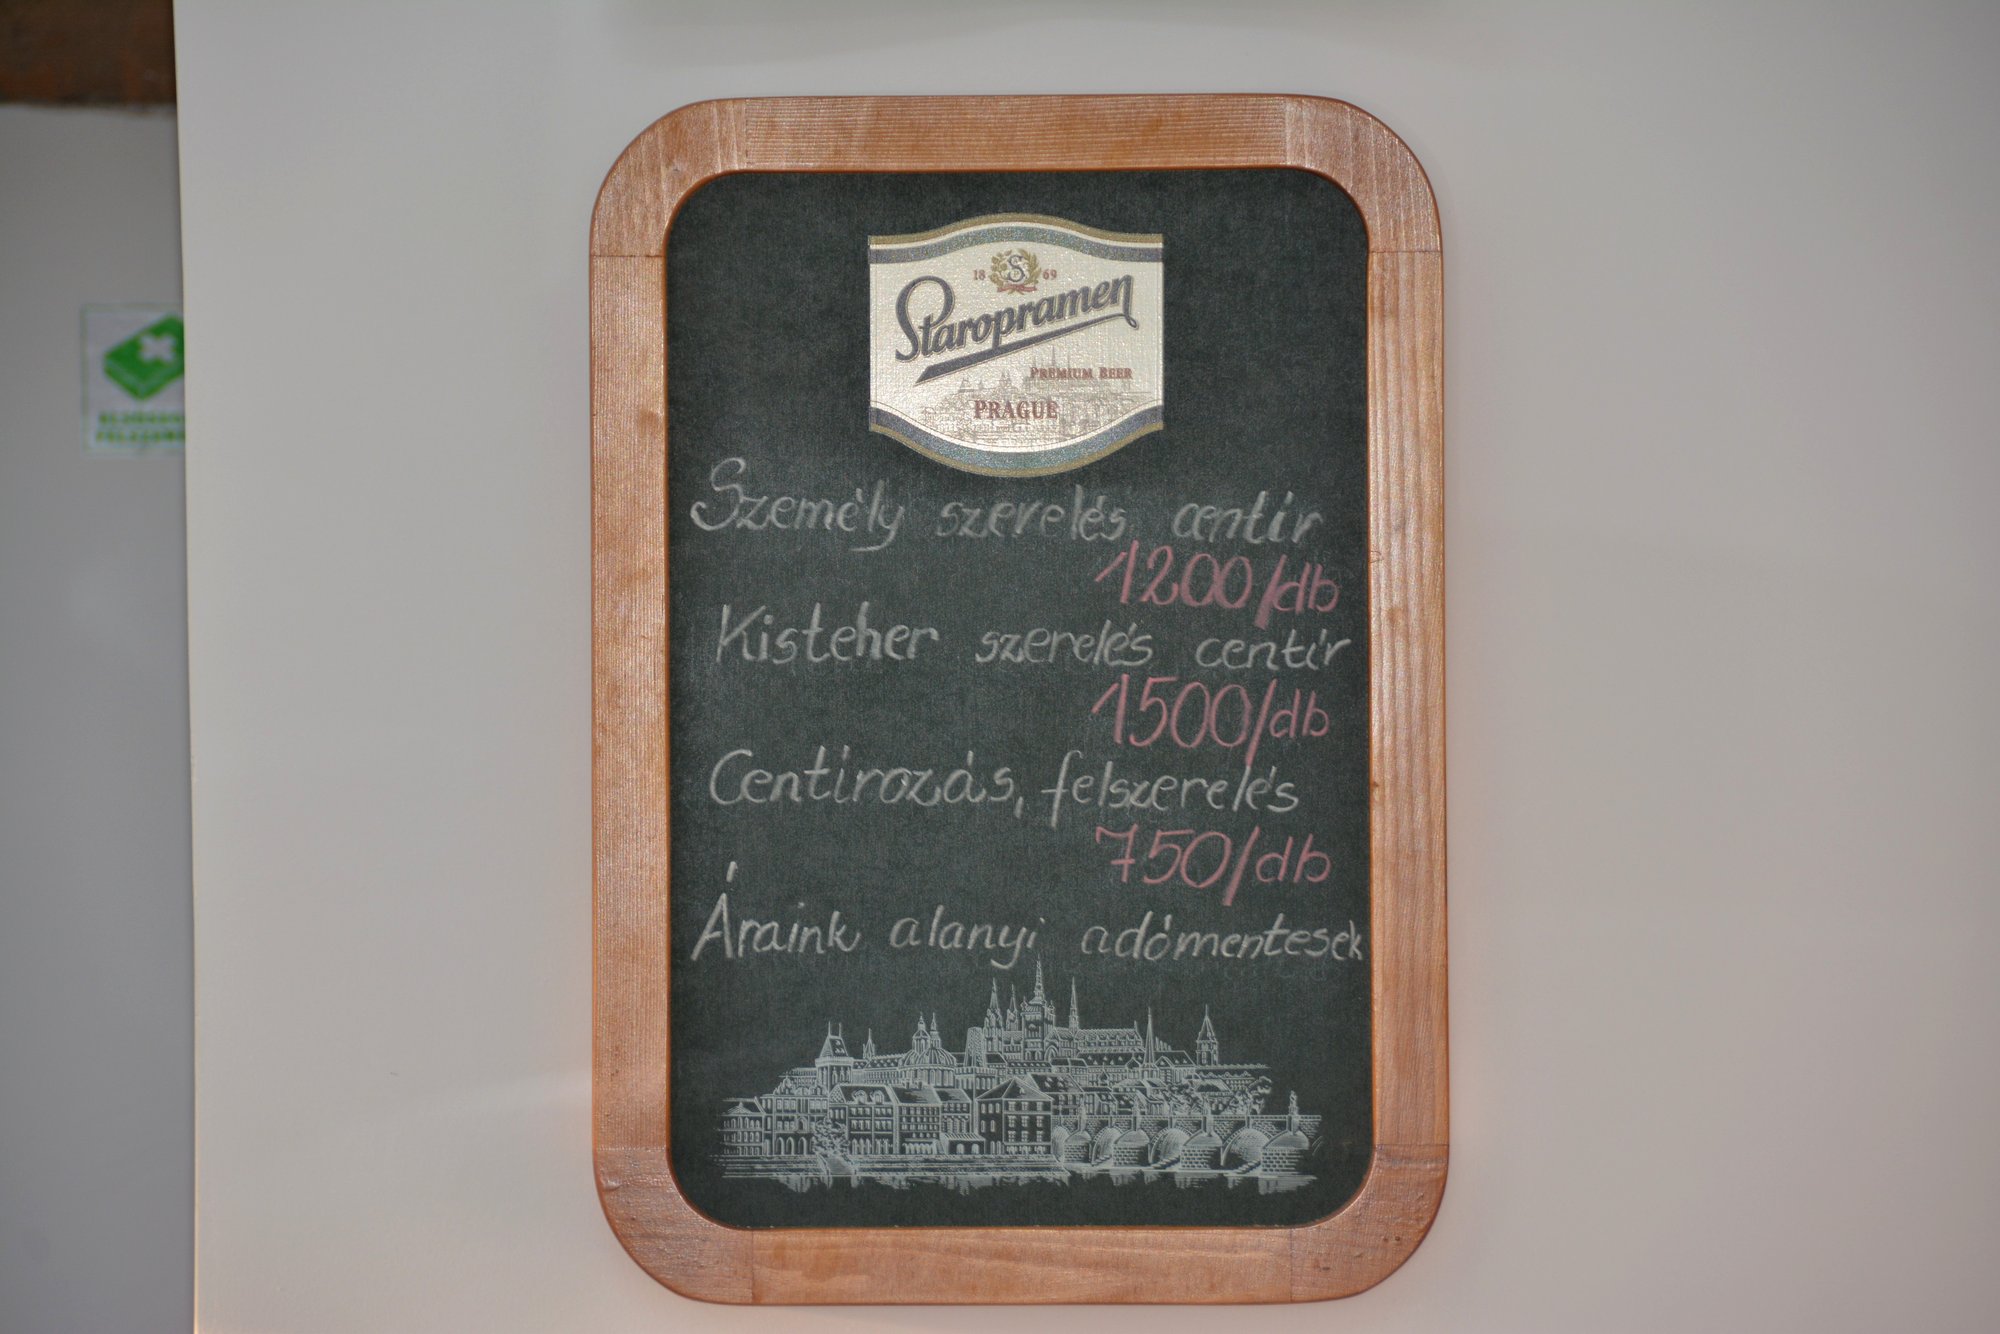 18 69
Staropramen
PREMIUM BEER
PRAGUE
Személy szerelés centír
1200/db
Kisteher szerelés centír
1500/db
Centírozás, felszerelés
750/db
Áraink alanyi adómentesek